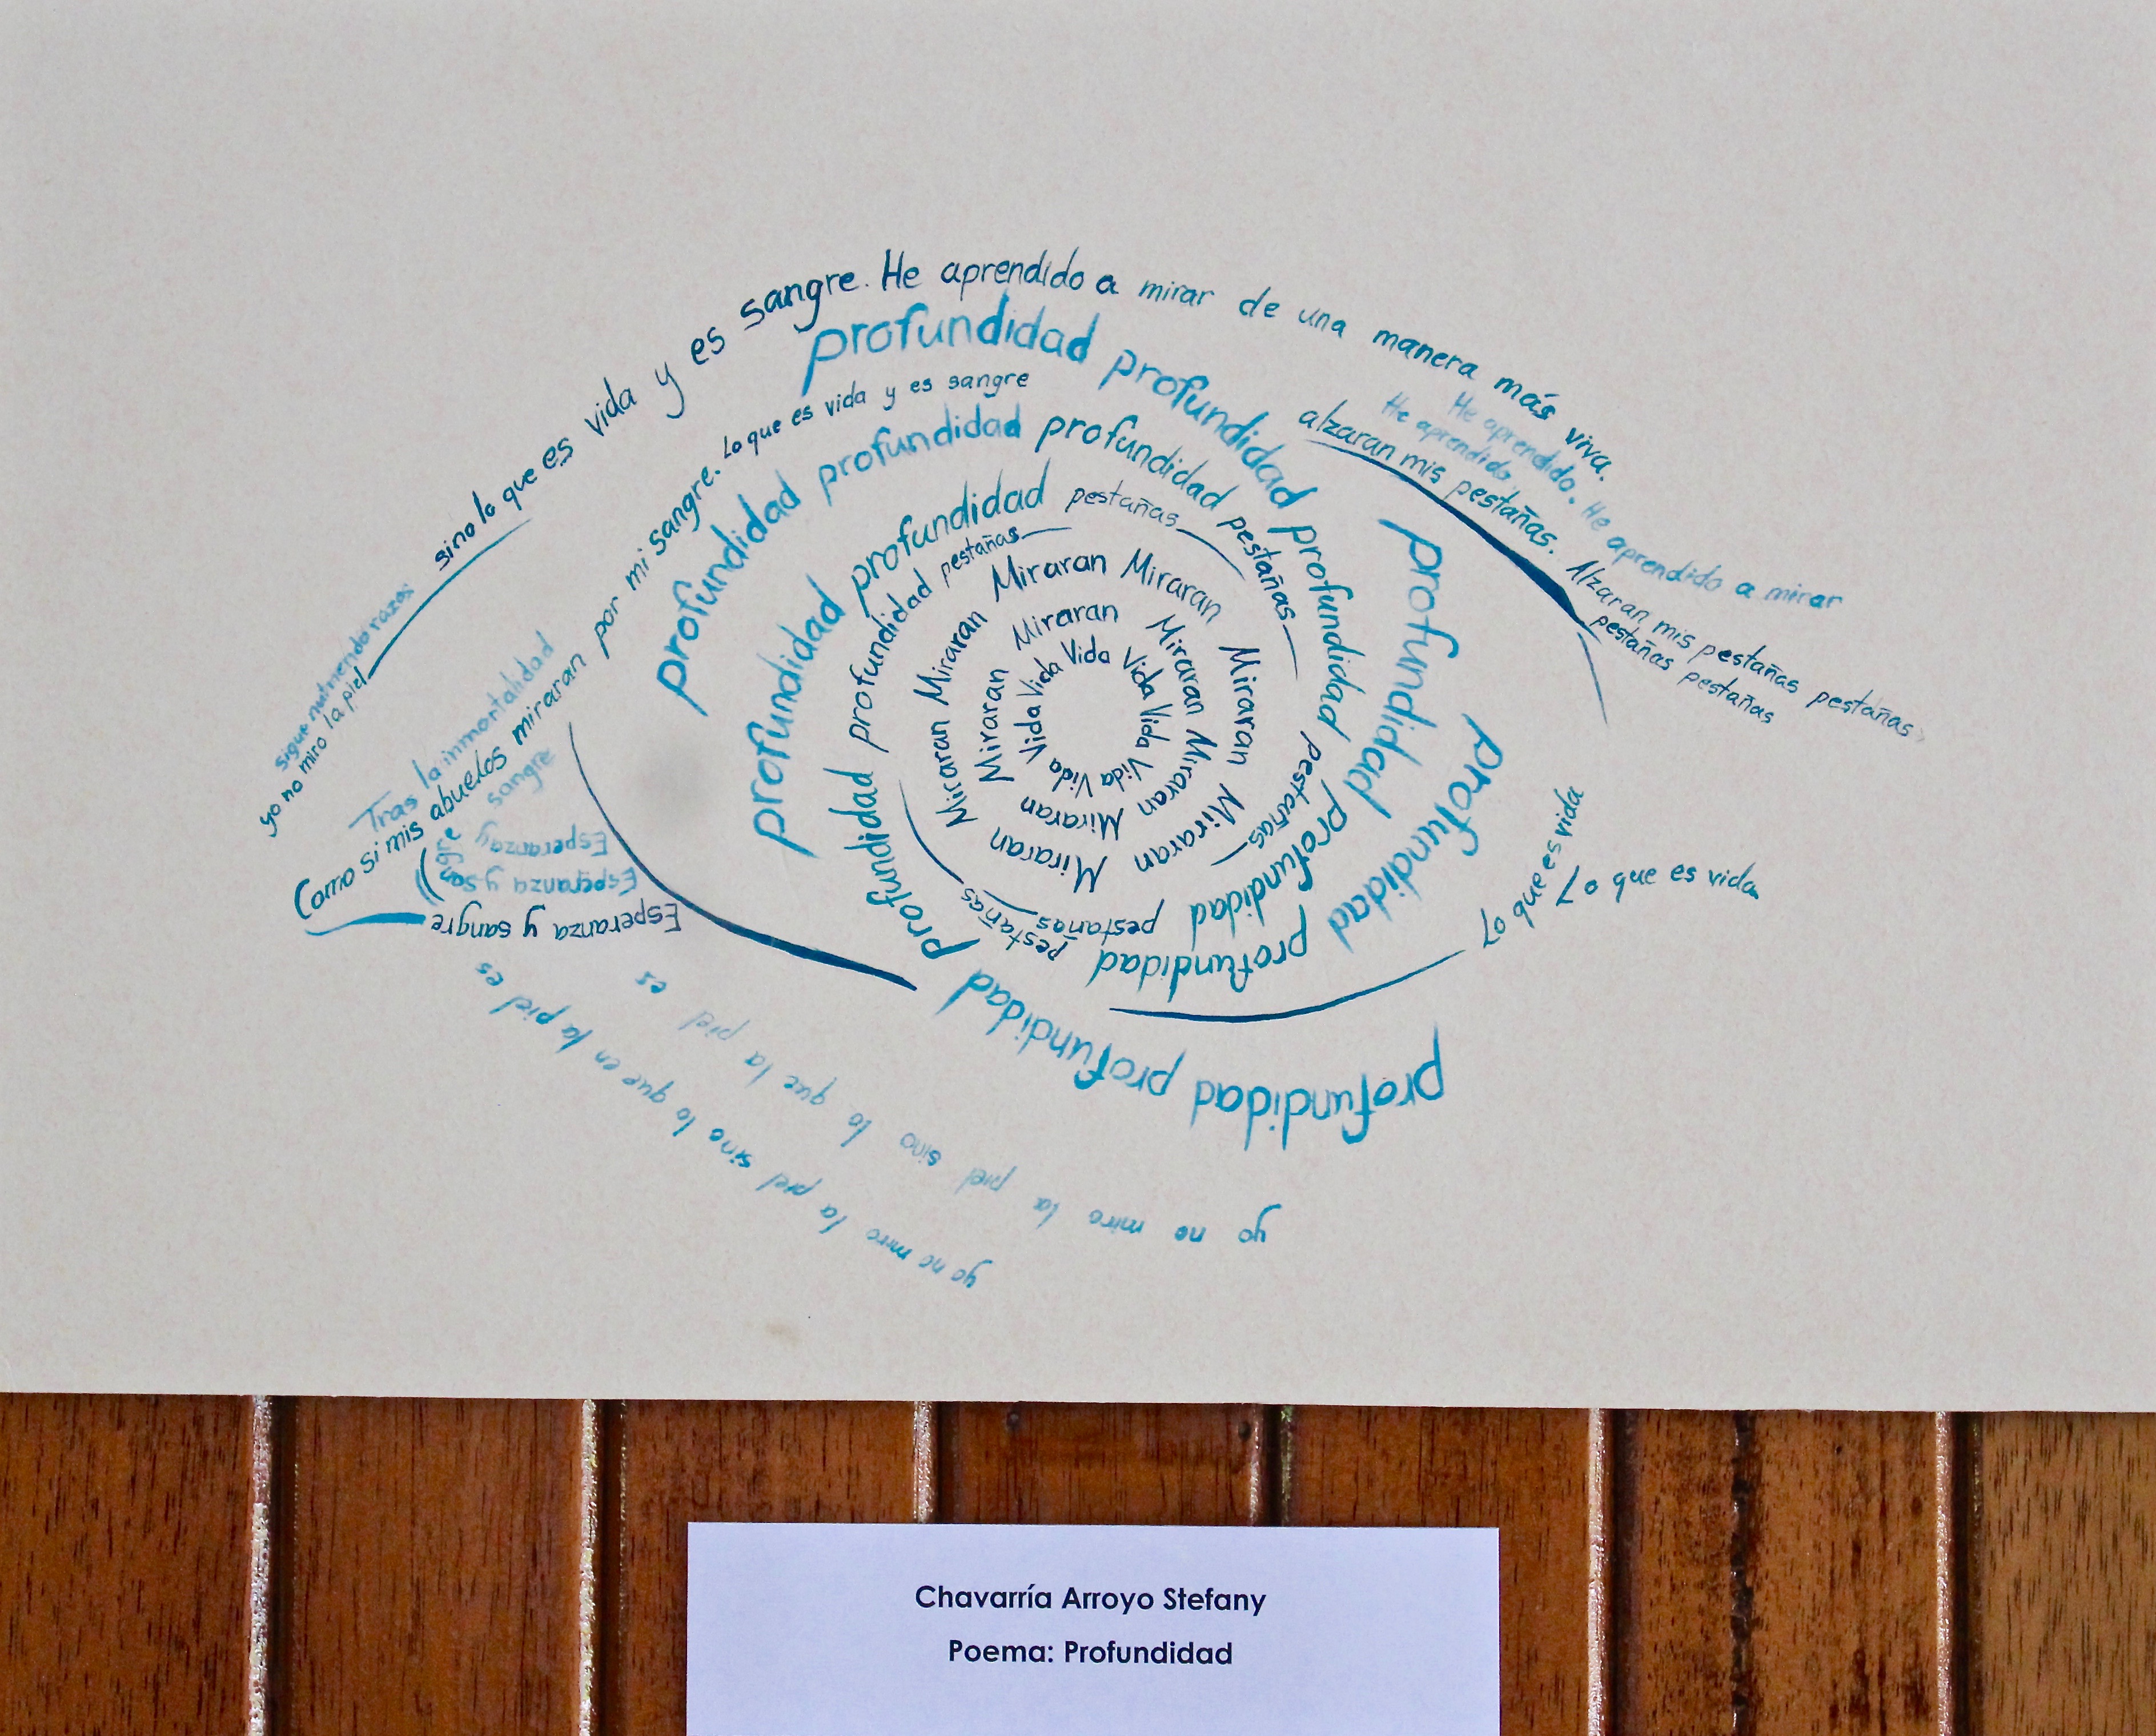 yo no miro la piel sino lo que es vida y es sangre. He aprendido a mirar de una manera más viva.
sigue nutriendo razas
He aprendido.
He aprendido. He aprendido a mirar
Tras la inmortalidad
Como si mis abuelos miraran por mi sangre. Lo que es vida y es sangre
alzaran mis pestañas. Alzaran mis pestañas pestañas
pestañas pestañas
sangre
Esperanza y sangre
Esperanza y sangre
Esperanza y sangre
profundidad profundidad profundidad profundidad
profundidad profundidad profundidad profundidad profundidad
profundidad profundidad
profundidad profundidad profundidad
profundidad profundidad profundidad profundidad
profundidad profundidad profundidad
pestañas pestañas pestañas
pestañas pestañas pestañas
Miraran Miraran Miraran Miraran Miraran Miraran Miraran Miraran
Miraran Miraran Miraran Miraran Miraran Miraran
Vida Vida Vida Vida Vida Vida Vida Vida
lo que es vida
Lo que es vida
yo no miro la piel sino lo que la piel es
yo no miro la piel sino lo que en la piel es
Chavarría Arroyo Stefany
Poema: Profundidad